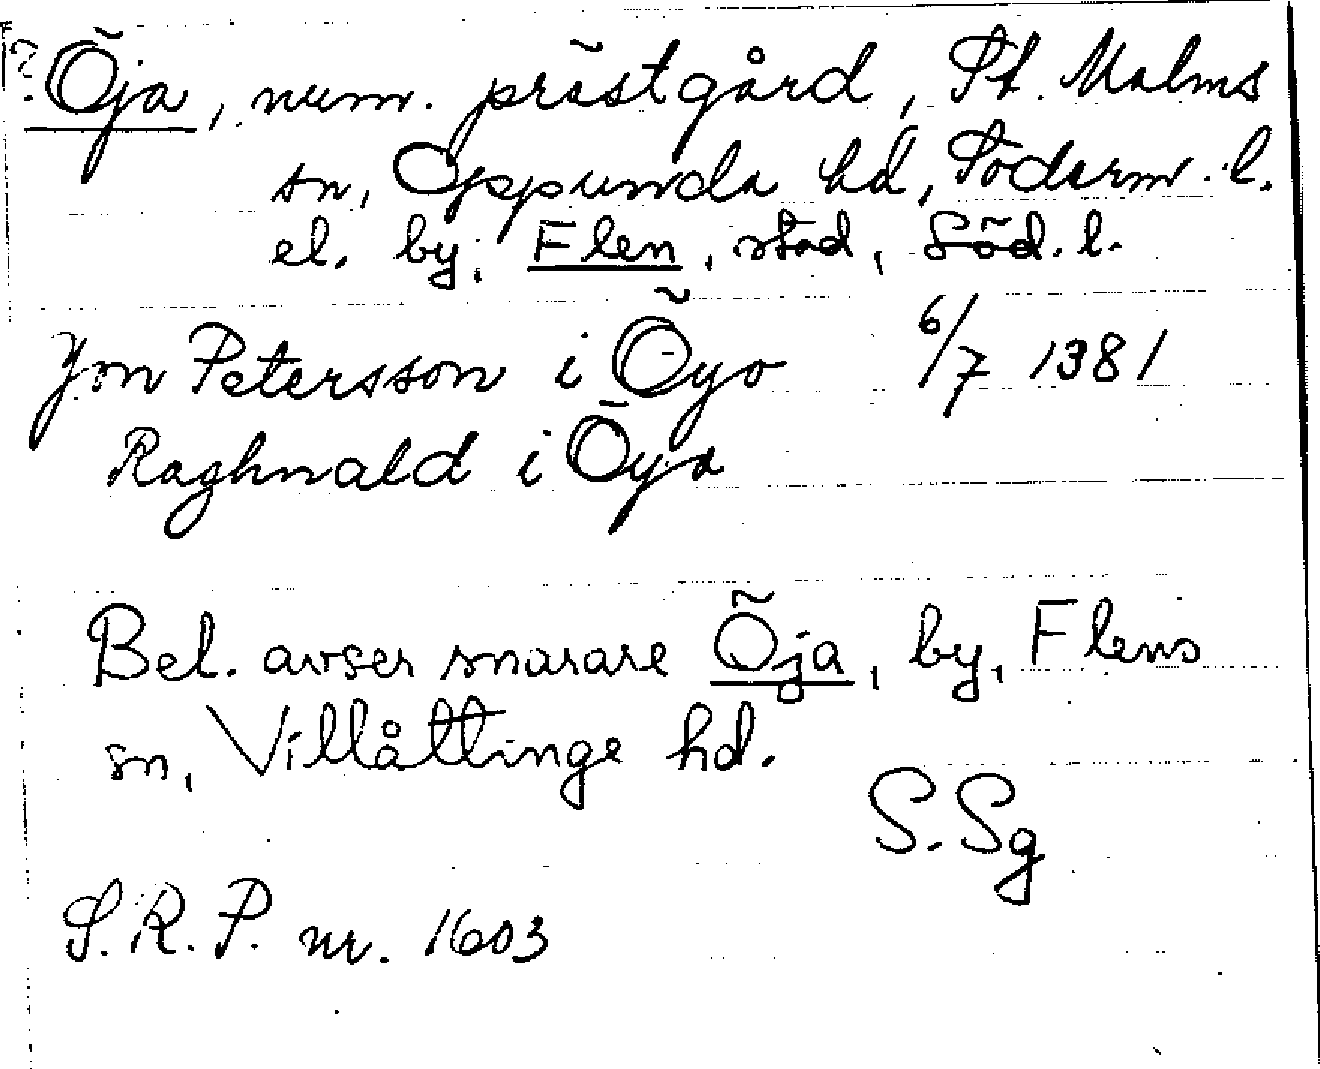 ? Öja, num. prästgård, St. Malms
sn, Oppunda hd, Söderm. l.
el. by, Flen, stad, Söd. l.
Jon Petersson i Öyo 6/7 1381
Raghnald i Öya
Bel. avser snarare Öja, by, Flens
sn, Villåttinge hd.
S. Sg
S.R.P. nr. 1603